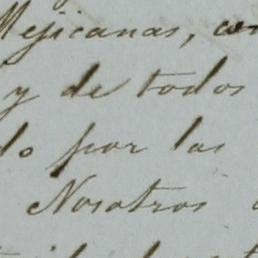 Mejicanas, con
y de todos
do por las
Nosotros